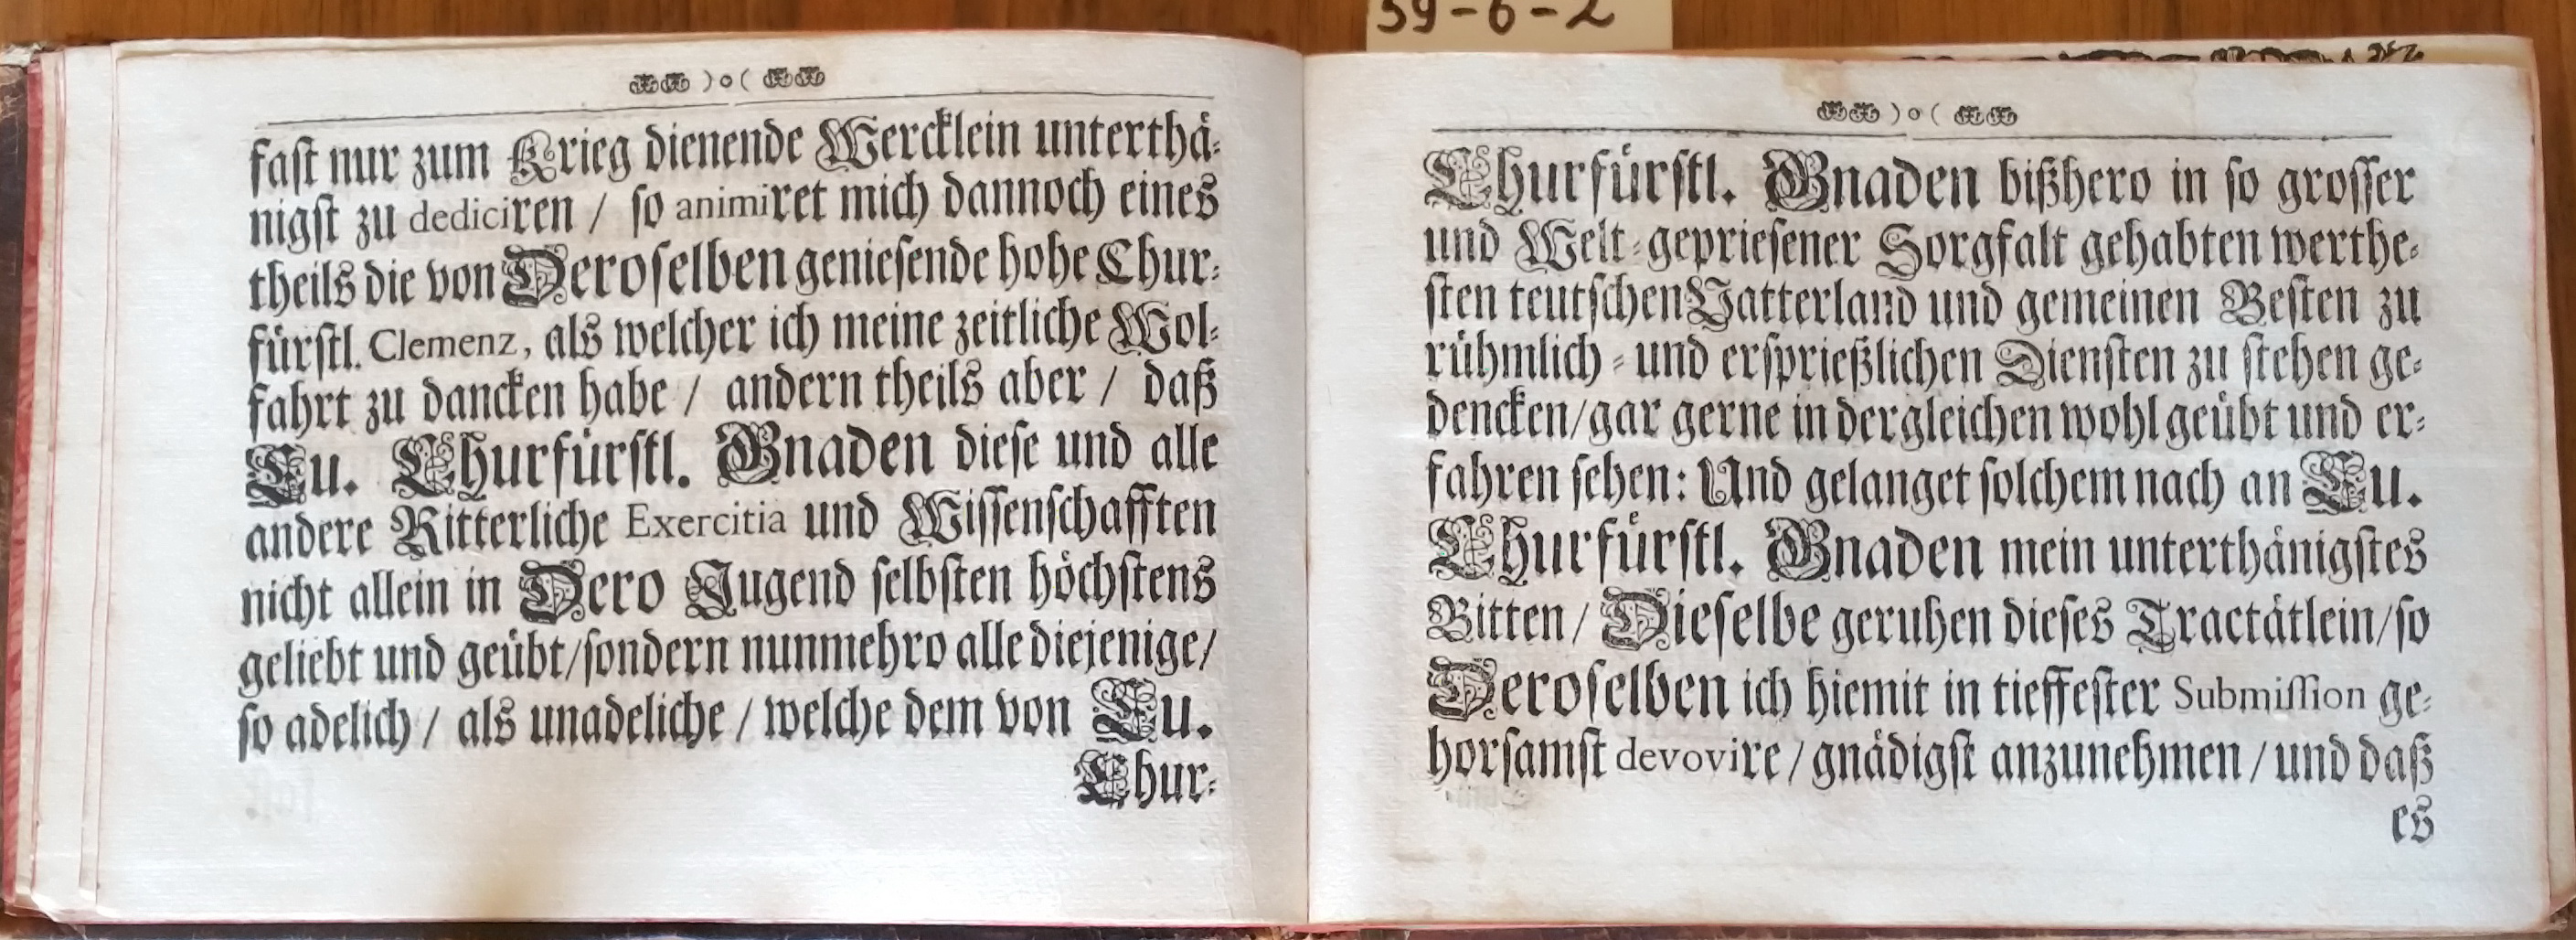 59-6-2
)o(
fast nur zum Krieg dienende Wercklein unterthä-
nigst zu dediciren / so animiret mich dannoch eines
theils die von Deroselben geniesende hohe Chur-
fürstl. Clemenz, als welcher ich meine zeitliche Wol-
fahrt zu dancken habe / andern theils aber / daß
Eu. Churfürstl. Gnaden diese und alle
andere Ritterliche Exercitia und Wissenschafften
nicht allein in Dero Jugend selbsten höchstens
geliebt und geübt/sondern nunmehro alle diejenige/
so adelich / als unadeliche / welche dem von Eu.
Chur-
)o(
Churfürstl. Gnaden bißhero in so grosser
und Welt-gepriesener Sorgfalt gehabten werthe-
sten teutschen Vatterland und gemeinen Besten zu
rühmlich- und ersprießlichen Diensten zu stehen ge-
dencken/gar gerne in dergleichen wohl geübt und er-
fahren sehen: Und gelanget solchem nach an Eu.
Churfürstl. Gnaden mein unterthänigstes
Bitten / Dieselbe geruhen dieses Tractätlein/so
Deroselben ich hiemit in tieffester Submission ge-
horsamst devovire / gnädigst anzunehmen / und daß
es